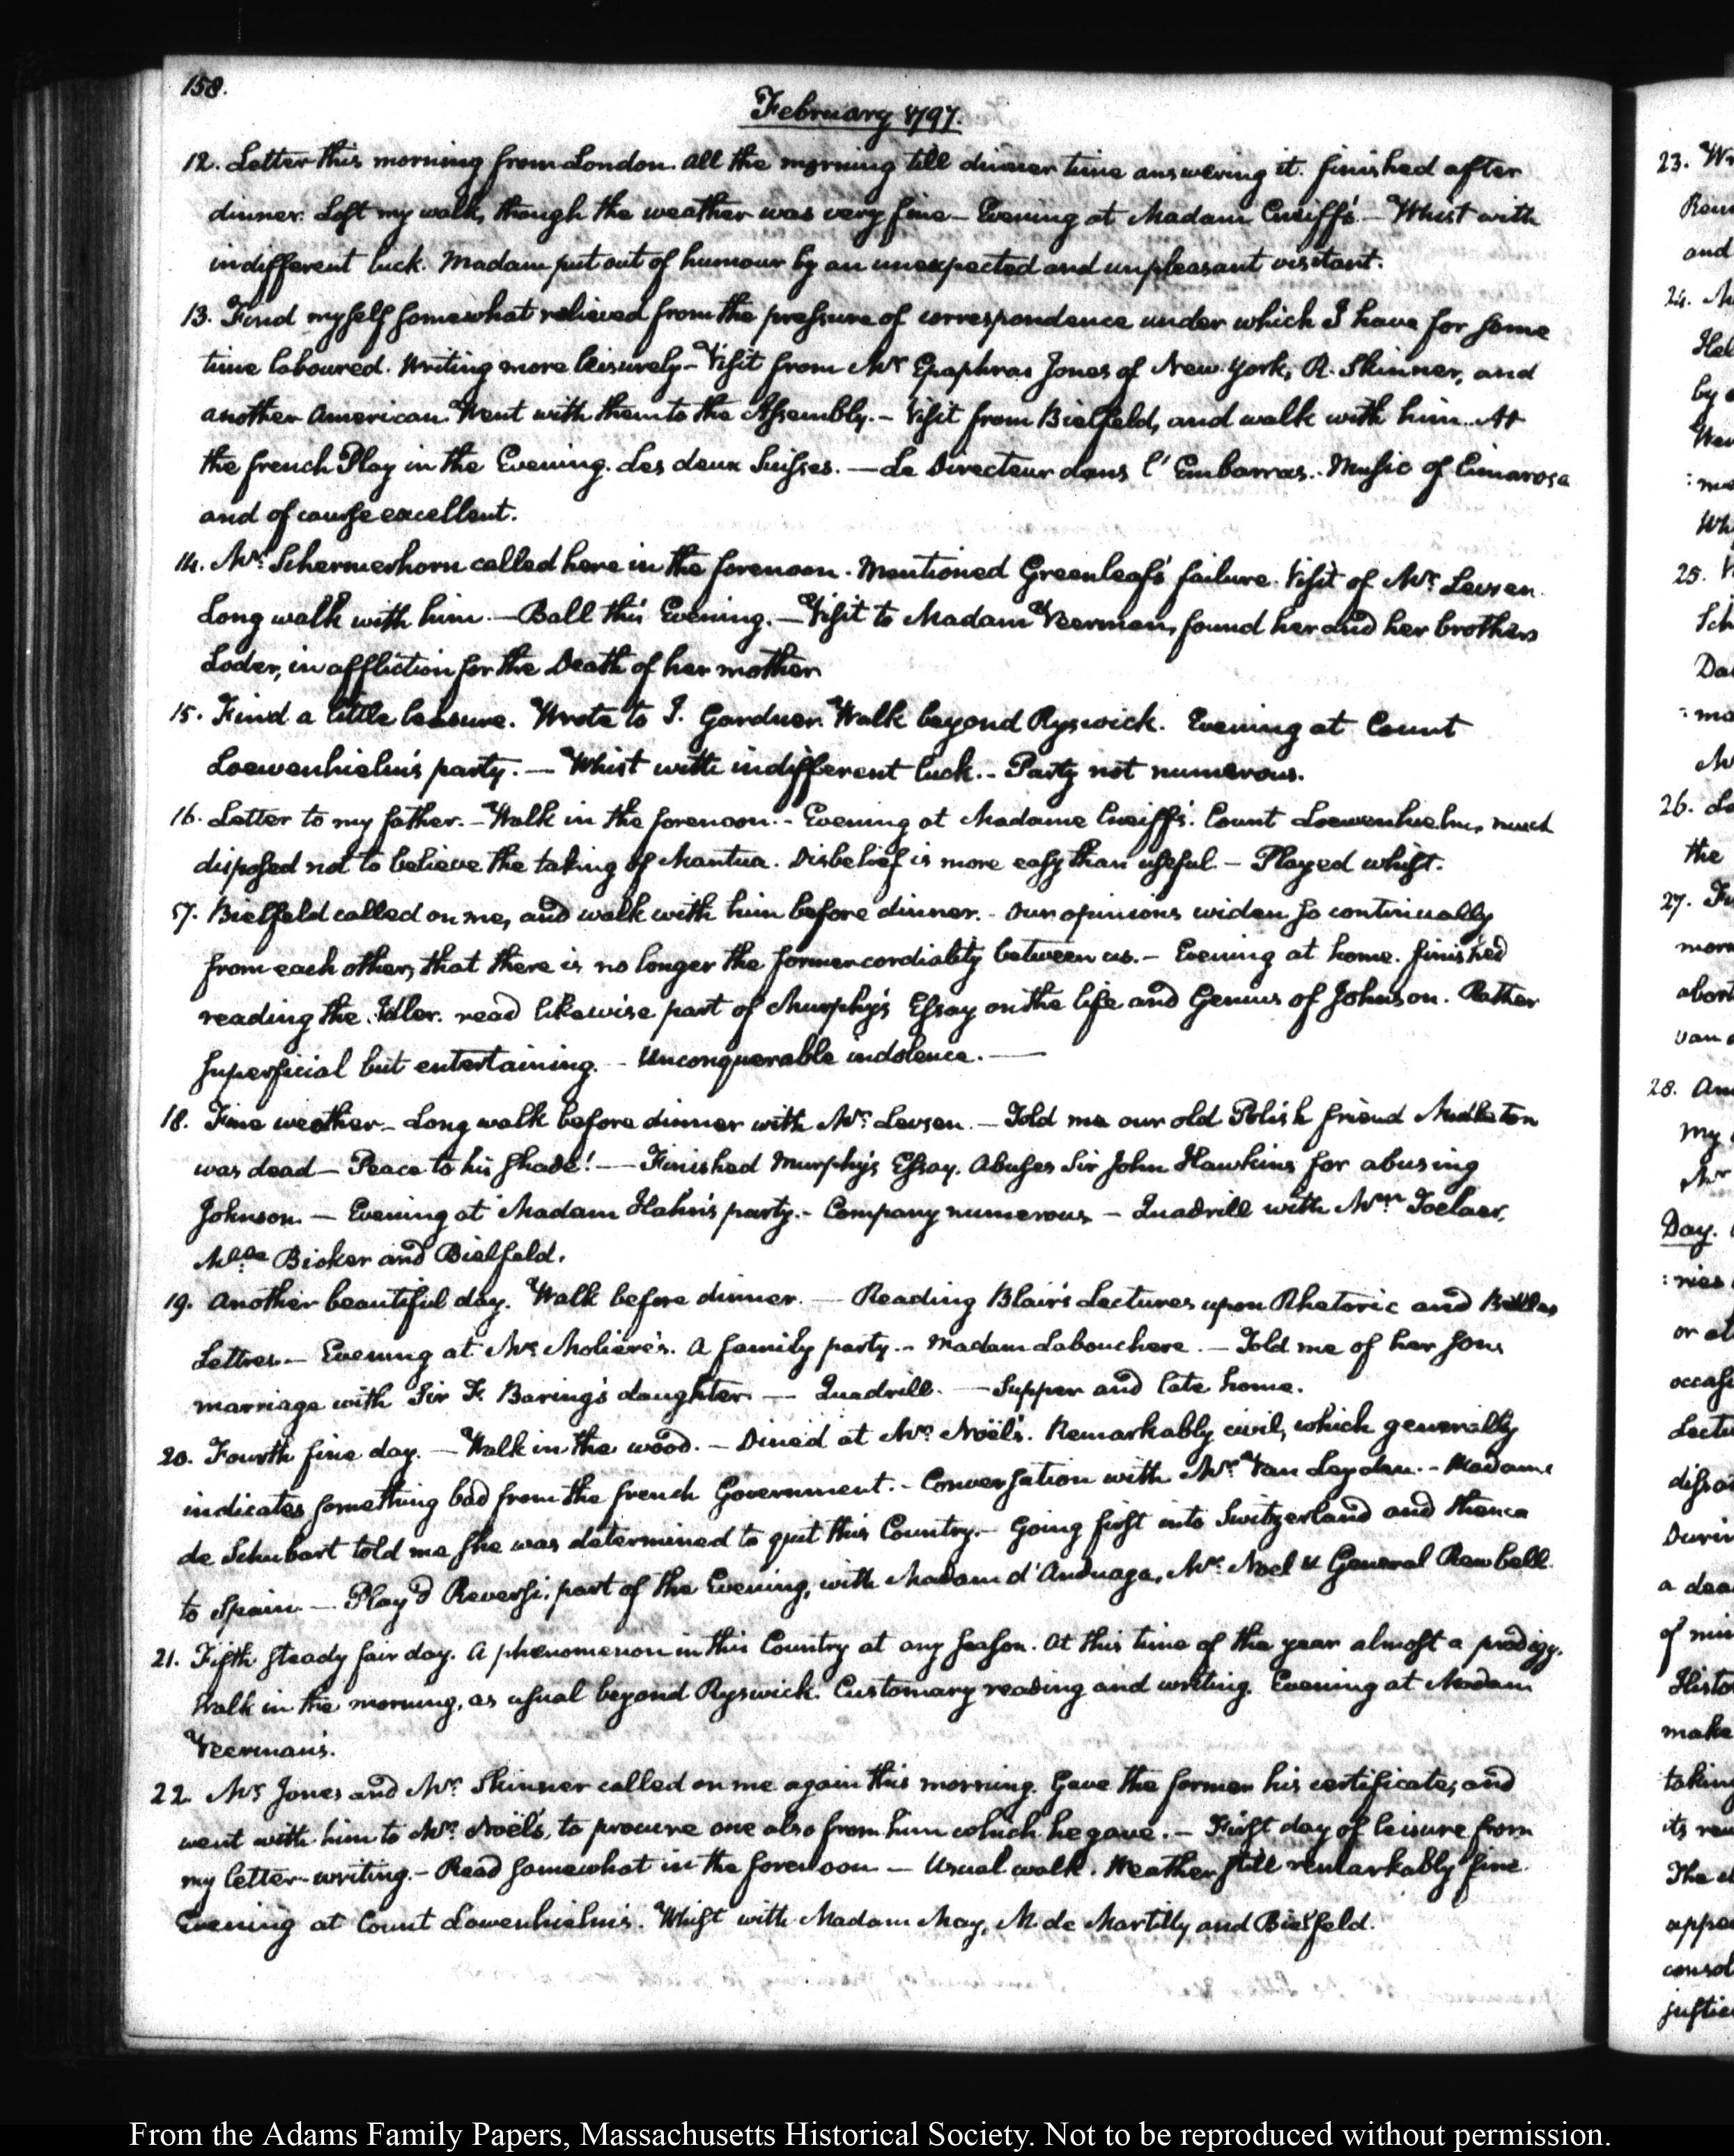 158.
February 1797.
12. Letter this morning from London. All the morning till dinner time answering it. finished after
dinner. Lost my walk, though the weather was very fine — Evening at Madam Creiff's. — Whist with
indifferent luck. Madam put out of humour by an unexpected and unpleasant visitant.
13. Find myself somewhat relieved from the pressure of correspondence under which I have for some
time laboured. Writing more leisurely — Visit from Mr. Epaphras Jones of New-York, R. Skinner, and
another American. Went with them to the Assembly. — Visit from Bielfeld, and walk with him. At
the french Play in the Evening. Les deux Suisses. — Le Directeur dans l'Embarras. Music of Cimarosa
and of course excellent.
14. Mr. Schermerhorn called here in the forenoon. Mentioned Greenleaf's failure. Visit of Mr. Levsen.
Long walk with him. — Ball this Evening. — Visit to Madam Veerman, found her and her brothers
Loder, in affliction for the Death of her mother
15. Find a little leisure. Wrote to J. Gardner. Walk beyond Ryswick. Evening at Count
Loewenhielm's party. — Whist with indifferent luck. - Party not numerous.
16. Letter to my father. — Walk in the forenoon. - Evening at Madame Creiff's. Count Loewenhielm, much
disposed not to believe the taking of Mantua. Disbelief is more easy than useful. — Played whist.
17. Bielfeld called on me, and walk with him before dinner. - Our opinions widen so continually
from each other, that there is no longer the former cordiality between us. — Evening at home. finished
reading the Idler. read likewise part of Murphy's Essay on the life and Genius of Johnson. Rather
superficial but entertaining. - Unconquerable indolence. —
18. Fine weather — Long walk before dinner with Mr. Levsen. — Told me our old Polish friend
was dead — Peace to his shade! — Finished Murphy's Essay. Abuses Sir John Hawkins for abusing
Johnson. — Evening at Madam Hahn's party. - Company numerous — Quadrille with Toelaer,
Mlle. Bicker and Bielfeld.
19. Another beautiful day. Walk before dinner. — Reading Blair's Lectures upon Rhetoric and Belles
Lettres. — Evening at Mr. Molière's. A family party. - Madam Labouchere. — Told me of her sons
marriage with Sir F. Baring's daughter. — Quadrille. — Supper and late home.
20. Fourth fine day. — Walk in the wood. — Dined at Mr. Noël's. Remarkably civil, which generally
indicates something bad from the french Government. - Conversation with Mr. Van Leyden. - Madame
de Schubart told me she was determined to quit this Country. — Going first into Switzerland and thence
to Spain — Play'd Reversi, part of the Evening, with Madam d'Anduaga, Mr. Noel & General Rewbell.
21. Fifth steady fair day. A phenomenon in this Country at any season. At this time of the year almost a prodigy.
Walk in the morning, as usual beyond Ryswick. Customary reading and writing. Evening at Madam
Veerman's.
22. Mr. Jones and Mr. Skinner called on me again this morning. Gave the former his certificate, and
went with him to Mr. Noël's, to procure one also from him which he gave. — First day of leisure from
my letter-writing. — Read somewhat in the forenoon — Usual walk. Weather still remarkably fine.
Evening at Count Lowenhielm's. Whist with Madam May, M. de Martilly and Bielfeld.
23.
and
24.
by
25.
26.
the
27.
28.
my
Mr
Day.
a
of
make
taking
From the Adams Family Papers, Massachusetts Historical Society. Not to be reproduced without permission.